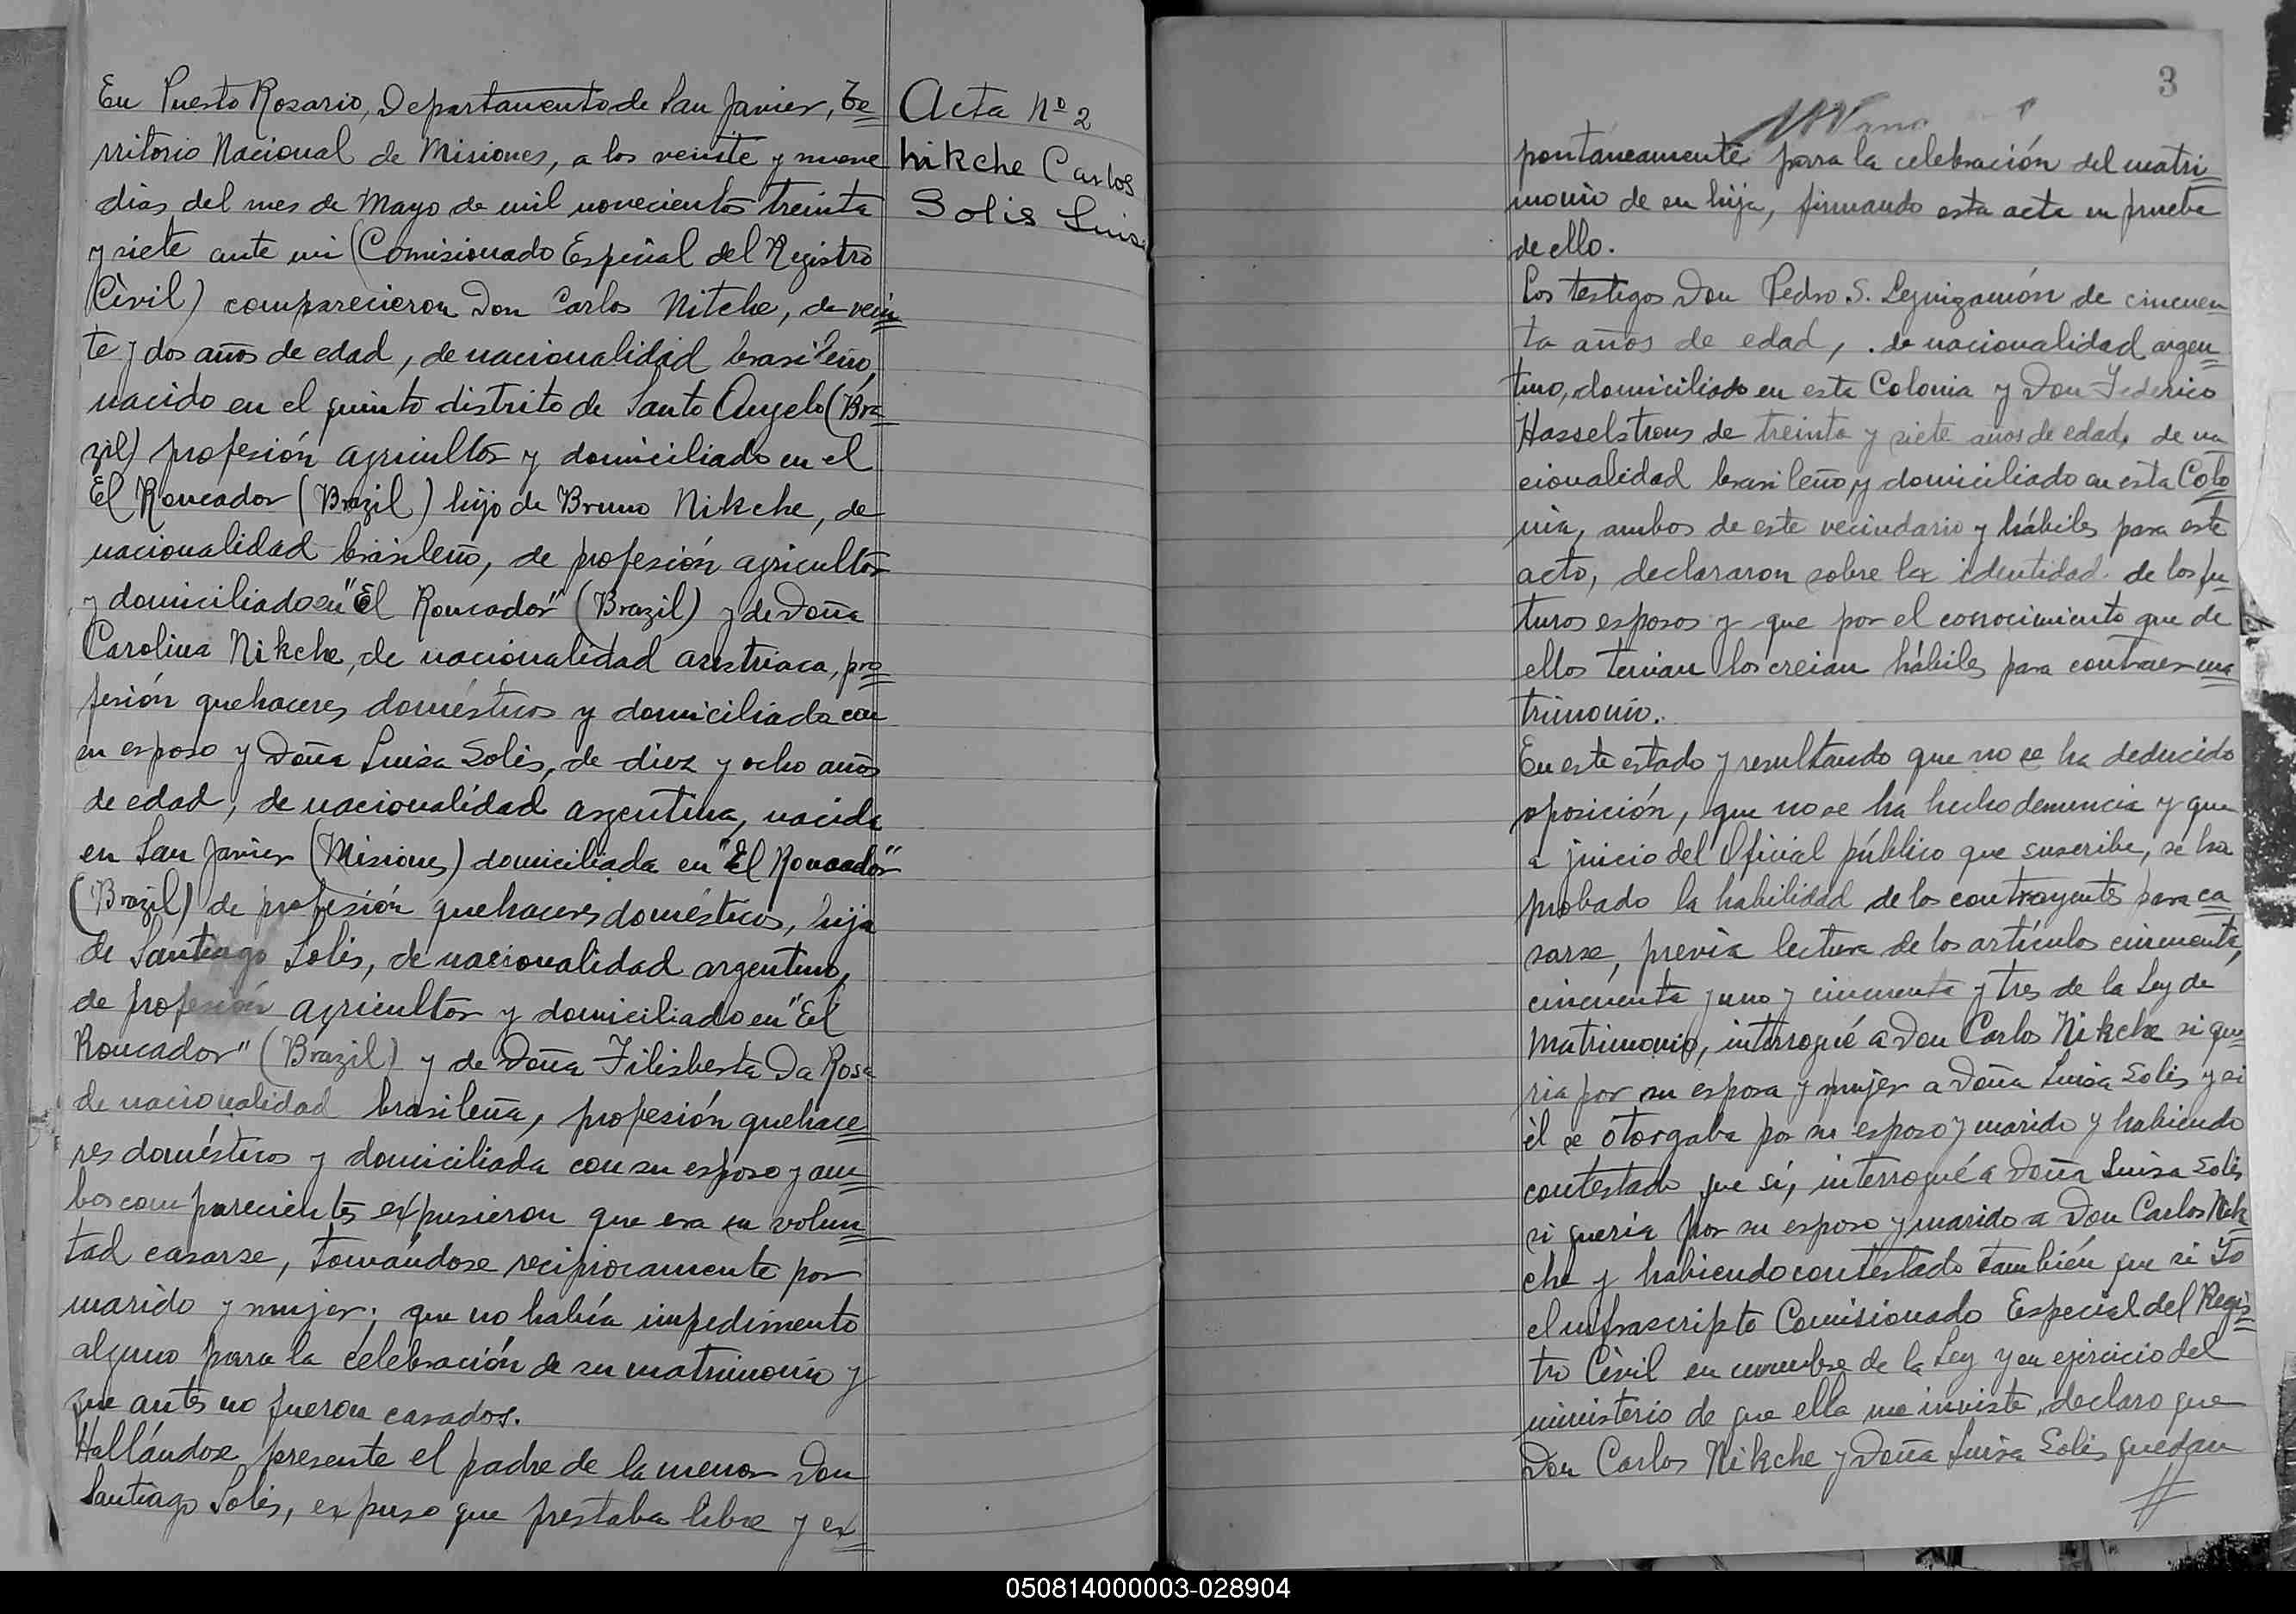 En Puesto Rosario, Departamento de San Javier, Te
rritorio Nacional de Misiones, a los veinte y nueve
dias del mes de Mayo de mil novecientos treinta
y siete ante mi (Comisionado Especial del Registro
Civil) comparecieron Don Carlos Nitche, de vein
te y dos años de edad, de nacionalidad brasileño,
nacido en el quinto distrito de Santo Angelo (Bra
zil) profesión agricultor y domiciliado en el
El Roncador (Brazil) hijo de Bruno Nikche, de
nacionalidad brasileño, de profesión agricultor
y domiciliado en "El Roncador" (Brazil) y de Doña
Carolina Nikche, de nacionalidad austriaca, pro
fesión quehaceres domésticos y domiciliada con
su esposo y Doña Luisa Solis, de diez y ocho años
de edad, de nacionalidad argentina, nacida
en San Javier (Misiones) domiciliada en "El Roncador"
(Brazil) de profesión quehaceres domésticos, hija
de Santiago Solis, de nacionalidad argentino,
de profesión agricultor y domiciliado en "El
Roncador" (Brazil) y de Doña Filisberta Da Rosa
de nacionalidad brasileña, profesión quehace
res domésticos y domiciliada con su esposo y am
bos comparecientes expusieron que era su volun
tad casarse, tomándose reciprocamente por
marido y mujer; que no había impedimento
alguno para la celebración de su matrimonio y
que antes no fueron casados.
Hallándose presente el padre de la menor Don
Santiago Solis, expuso que prestaba libre y es
Acta Nº 2
Nikche Carlos
Solis Luisa
3
pontáneamente para la celebración del matri
monio de su hija, firmando esta acta en prueba
de ello.
Los testigos Don Pedro S. Leguizamón de cincuen
ta años de edad, de nacionalidad argen
tino, domiciliado en esta Colonia y Don Federico
Hasselstrons de treinta y siete años de edad, de na
cionalidad brasileño y domiciliado en esta Colo
nia, ambos de este vecindario y hábiles para este
acto, declararon sobre la identidad de los fu
turos esposos y que por el conocimiento que de
ellos tenian los creian hábiles para contraer ma
trimonio.
En este estado y resultando que no se ha deducido
oposición, que no se ha hecho denuncia y que
a juicio del Oficial público que suscribe, se ha
probado la habilidad de los contrayentes para ca
sarse, previa lectura de los artículos cincuenta,
cincuenta y uno y cincuenta y tres de la Ley de
Matrimonio, interrogué a Don Carlos Nikche si que
ria por su esposa y mujer a Doña Luisa Solis y si
él se otorgaba por su esposo y marido y habiendo
contestado que sí, interrogué a Doña Luisa Solis
si quería por su esposo y marido a Don Carlos Nik
che y habiendo contestado también que si Yo
el infrascripto Comisionado Especial del Regis
tro Civil en nombre de la Ley y en ejercicio del
ministerio de que ella me inviste, declaro que
Don Carlos Nikche y Doña Luisa Solis quedan
#
050814000003-028904